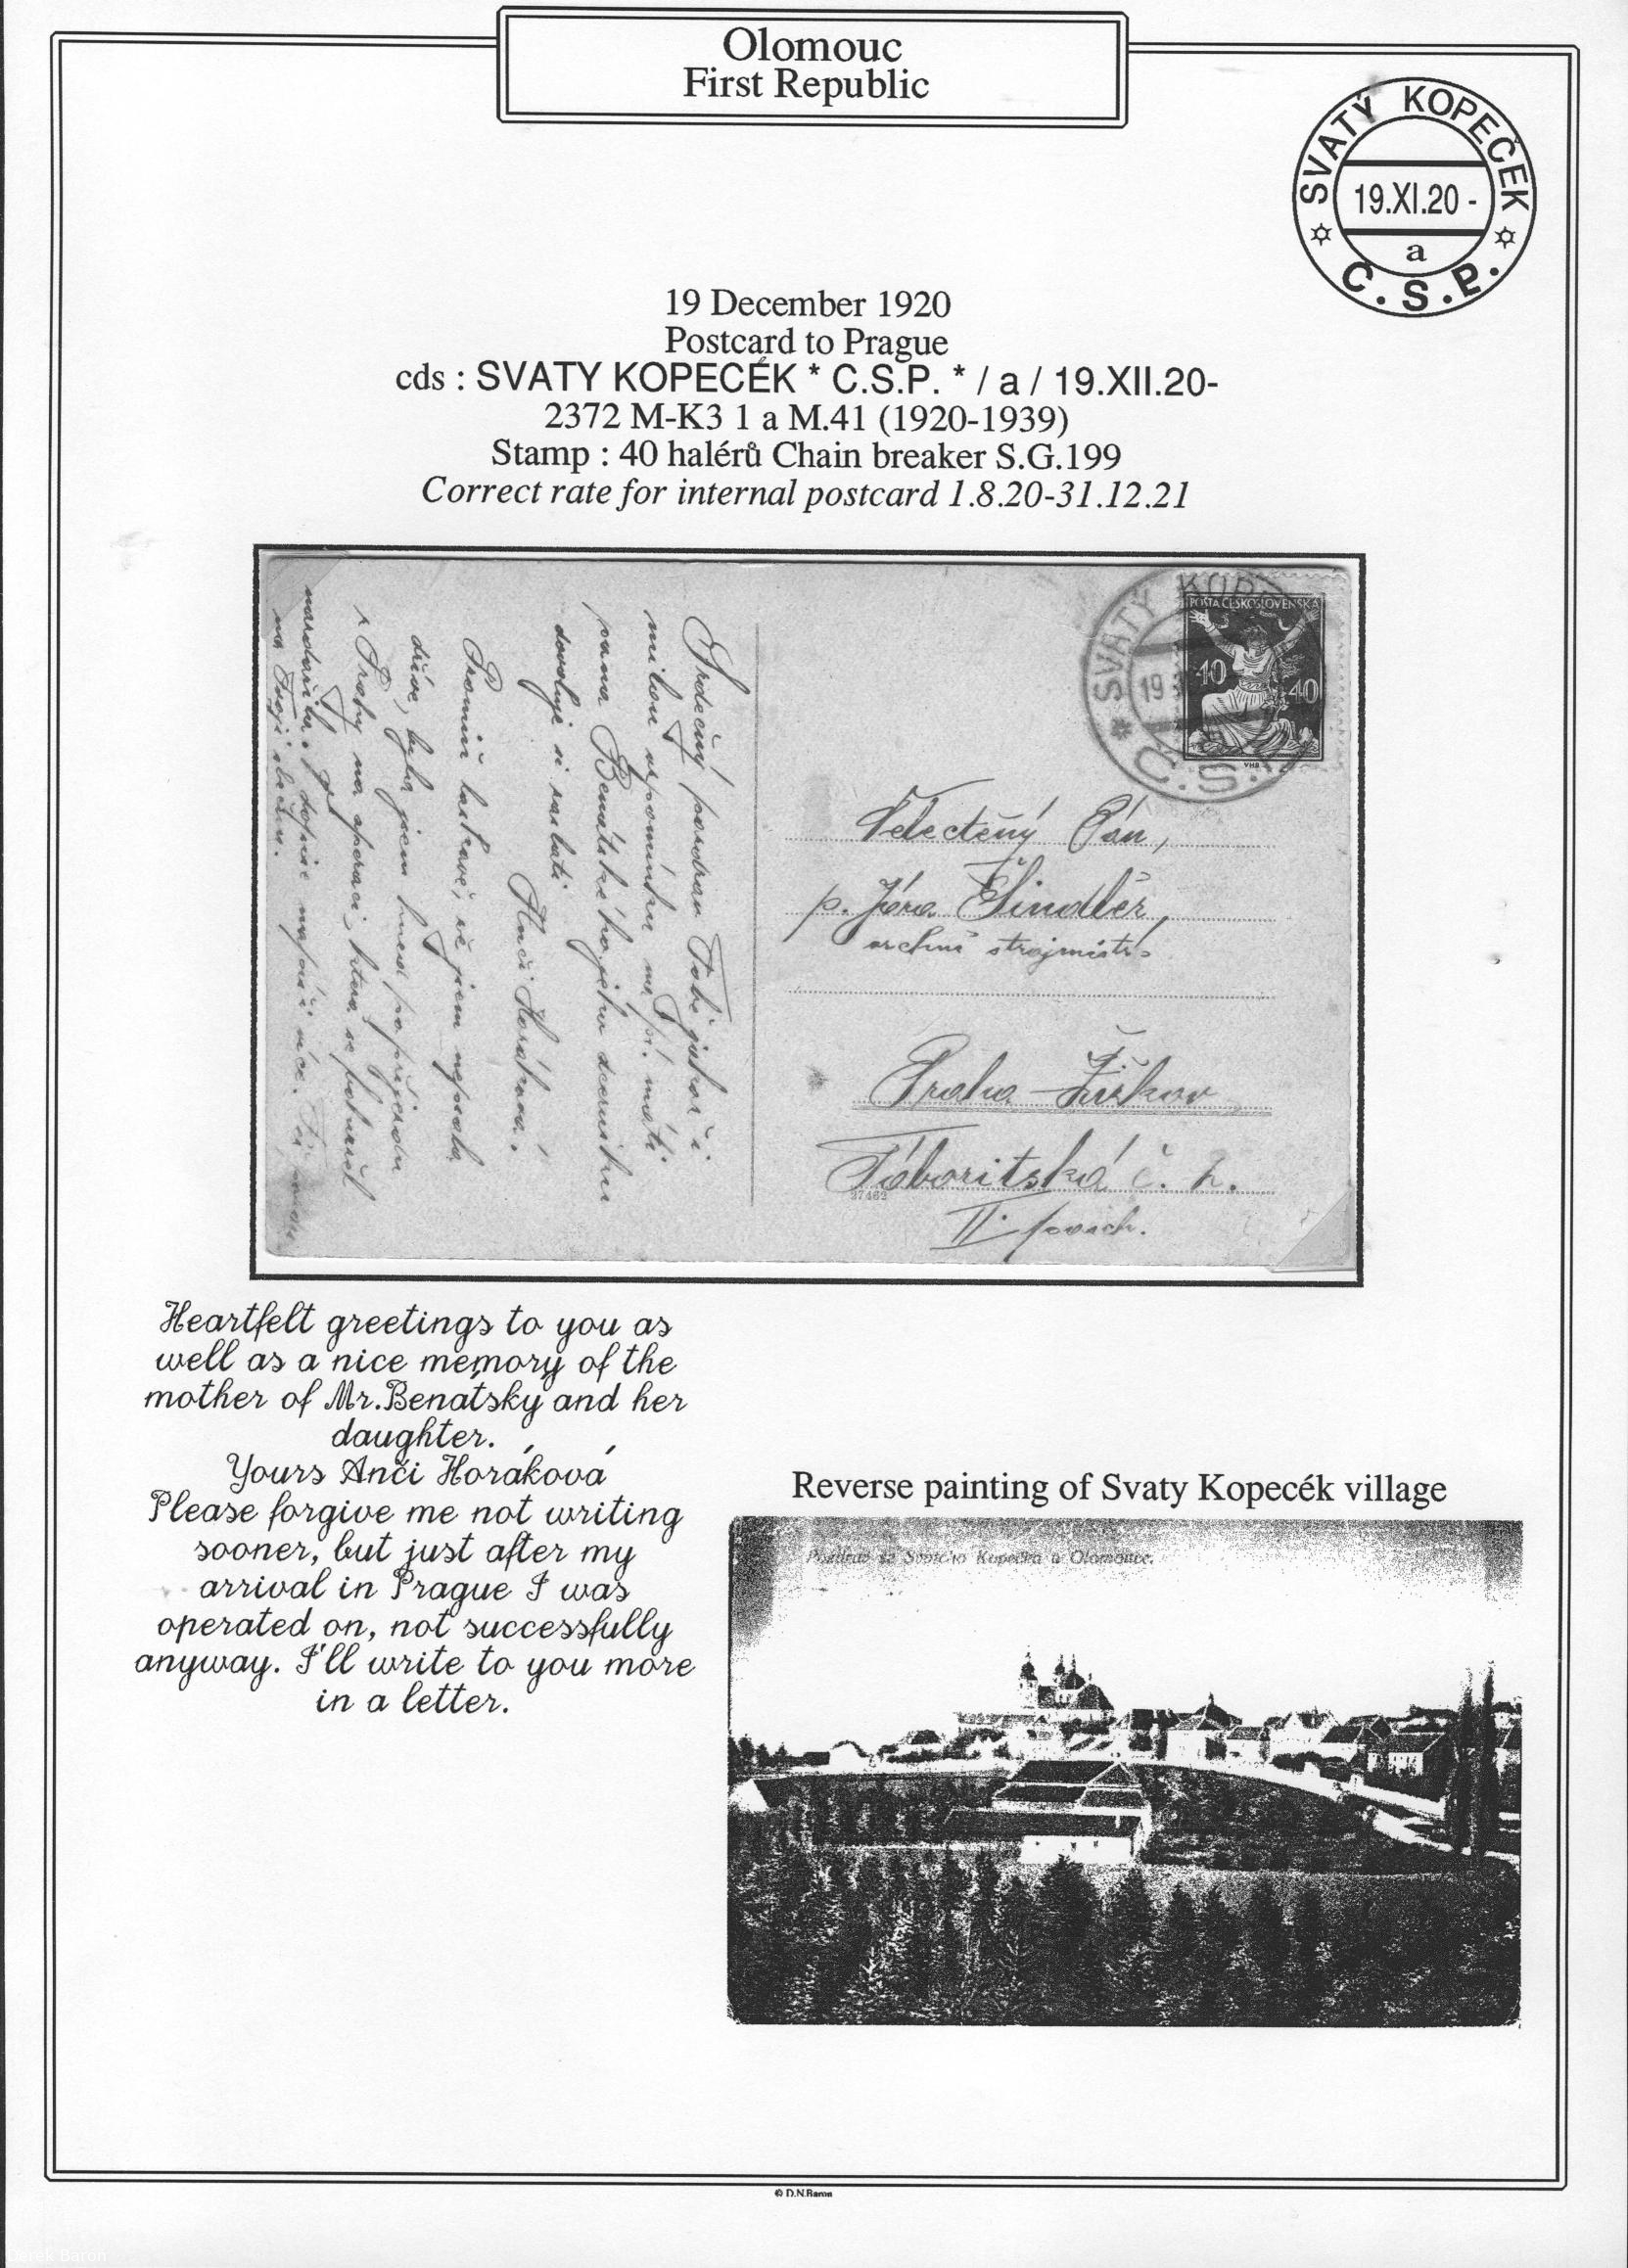 Olomouc
First Republic
SVATÝ KOPEČEK
19.XI.20 -
a
Č.S.P.
19 December 1920
Postcard to Prague
cds : SVATY KOPECÉK * C.S.P. * / a / 19.XII.20-
2372 M-K3 1 a M.41 (1920-1939)
Stamp : 40 halérů Chain breaker S.G.199
Correct rate for internal postcard 1.8.20-31.12.21
SVATÝ KOP
19
Č.S.
POŠTA ČESKOSLOVENSKÁ
40
40
VHB
Velectěný Pán,
p. Jára Šindlěř,
vrchní strojmistr
Praha - Žižkov
Táboritská č.
37462
II. posch.
Srdečný pozdrav Tobě jakož i
milou upomínku na pí. máti
pana Benátského jeho dcerušku
dovoluje si zaslati
Anči Horáková.
Promiň laskavě, že jsem nepsala
dříve, byla jsem hned po příjezdu
z Prahy na operaci, která se bohužel
nezdařila.
Heartfelt greetings to you as
well as a nice memory of the
mother of Mr.Benátský and her
daughter.
Yours Anči Horáková
Please forgive me not writing
sooner, but just after my
arrival in Prague I was
operated on, not successfully
anyway. I'll write to you more
in a letter.
Reverse painting of Svaty Kopecék village
Pozdrav ze Svatého Kopečka u Olomouce.
© D.N.Baron
Derek Baron